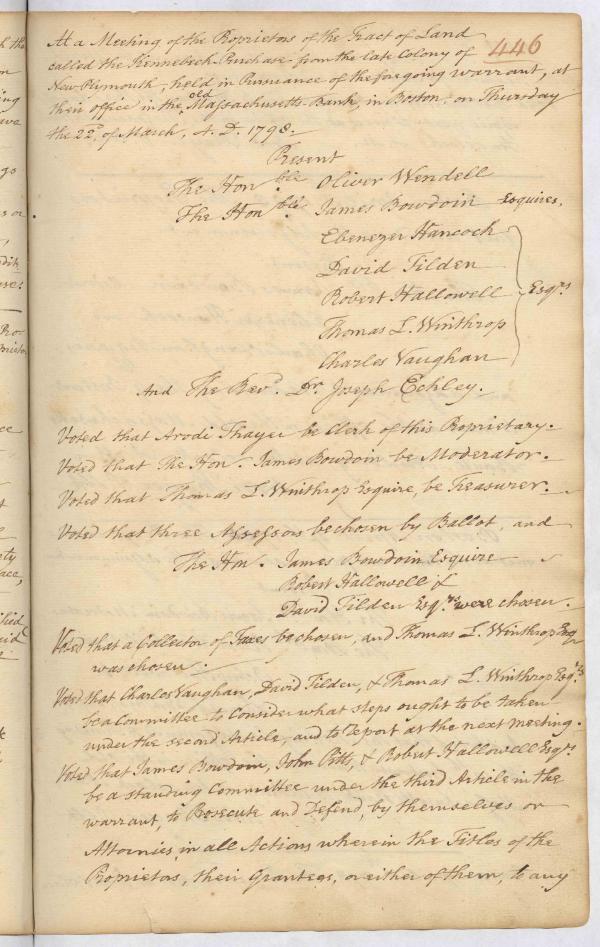 446
At a Meeting of the Proprietors of the Tract of Land
called the Kennebeck-Purchase from the late Colony of
New Plymouth, held in Pursuance of the foregoing warrant, at
their office in the old Massachusetts-Bank, in Boston, on Thursday
the 22d. of March, A. D. 1798.
Present
The Honble Oliver Wendell
The Honble. James Bowdoin Esquires,
Ebenezer Hancock
David Tilden
Robert Hallowell Esqrs
Thomas L. Winthrop
Charles Vaughan
And The Revd. Dr. Joseph Eckley.
Voted that Arodi Thayer be Clerk of this Proprietary.
Voted that The Hon. James Bowdoin be Moderator.
Voted that Thomas L. Winthrop Esquire, be Treasurer.
Voted that three Assessors be chosen by Ballot, and
The Hon. James Bowdoin Esquire
Robert Hallowell &
David Tilden Esqrs. were chosen.
Voted that a Collector of Taxes be chosen, and Thomas L. Winthrop Esqr
was chosen.
Voted that Charles Vaughan, David Tilden, & Thomas L. Winthrop Esqrs.
be a Committee to Consider what steps ought to be taken
under the second Article, and to report at the next meeting.
Voted that James Bowdoin, John Pitts, & Robert Hallowell Esqrs
be a standing Committee under the third Article in the
warrant, to Prosecute and Defend, by themselves or
Attornies, in all Actions wherein the Titles of the
Proprietors, their Grantees, or either of them, to any